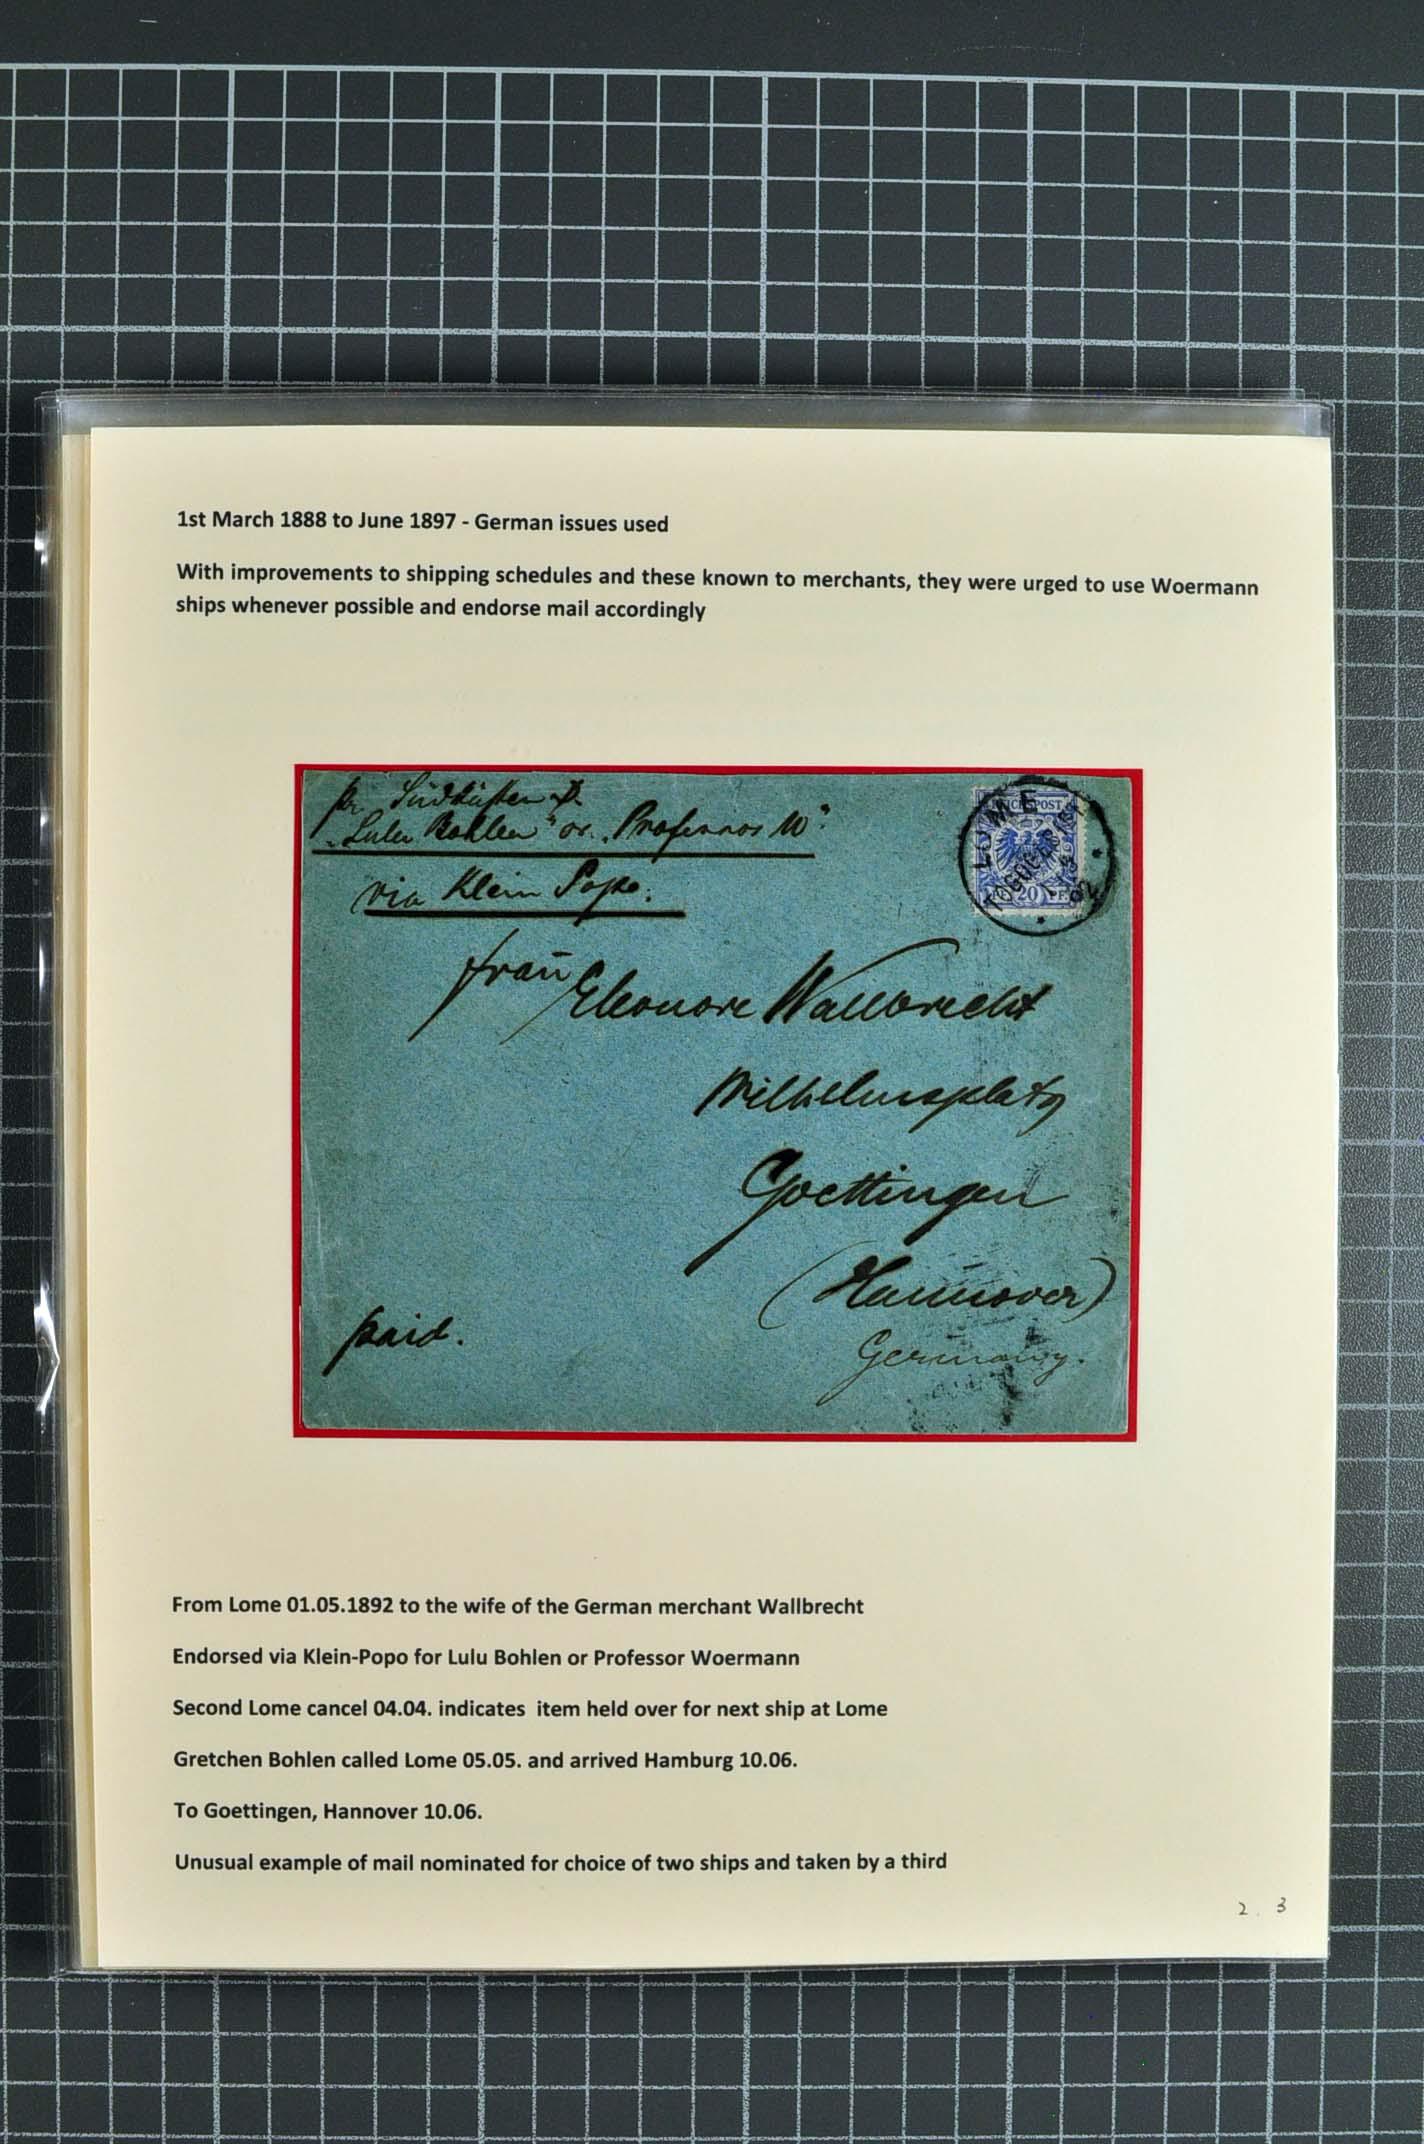 1st March 1888 to June 1897 - German issues used
With improvements to shipping schedules and these known to merchants, they were urged to use Woermann
ships whenever possible and endorse mail accordingly
pr. Südküsten
"Lulu Bohlen" or "Professor W".
via Klein Popo.
REICHSPOST
20 PF.
LOME
TOGOGEBIET
1/5
92
Frau Eleonore Wallbrecht
Wilhelmsplatz
Goettingen
(Hannover)
Germany.
paid.
From Lome 01.05.1892 to the wife of the German merchant Wallbrecht
Endorsed via Klein-Popo for Lulu Bohlen or Professor Woermann
Second Lome cancel 04.04. indicates  item held over for next ship at Lome
Gretchen Bohlen called Lome 05.05. and arrived Hamburg 10.06.
To Goettingen, Hannover 10.06.
Unusual example of mail nominated for choice of two ships and taken by a third
2. 3